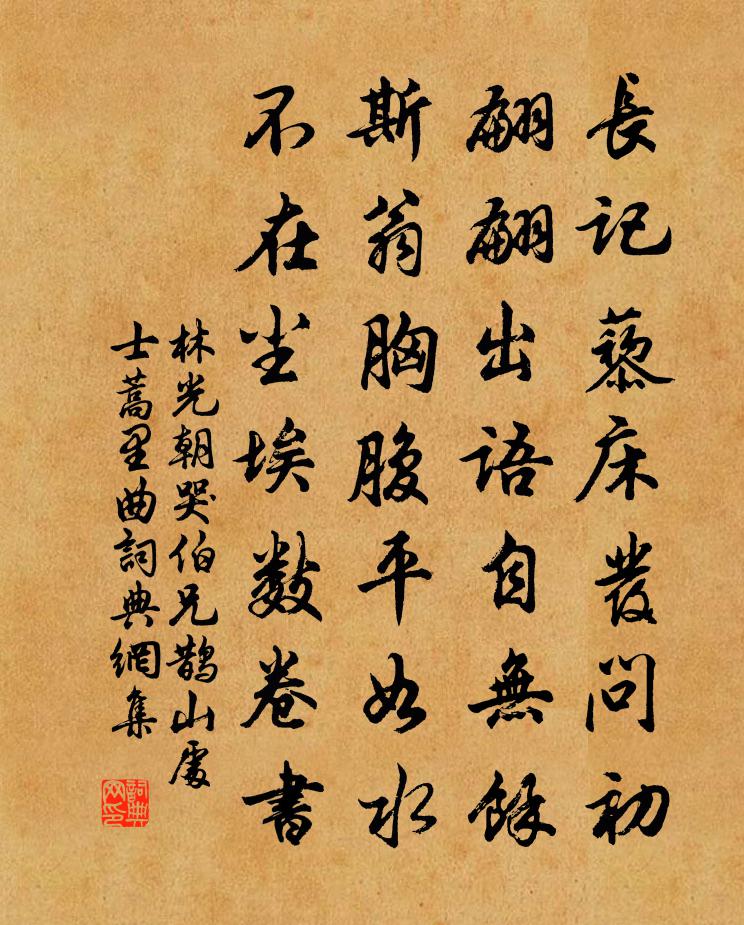 長記藜床發問初
翩翩出語自無餘
斯翁胸腹平如水
不在尘埃數卷書
林光朝哭伯兄鹊山處
士蒿里曲詞典網集
詞典
网印